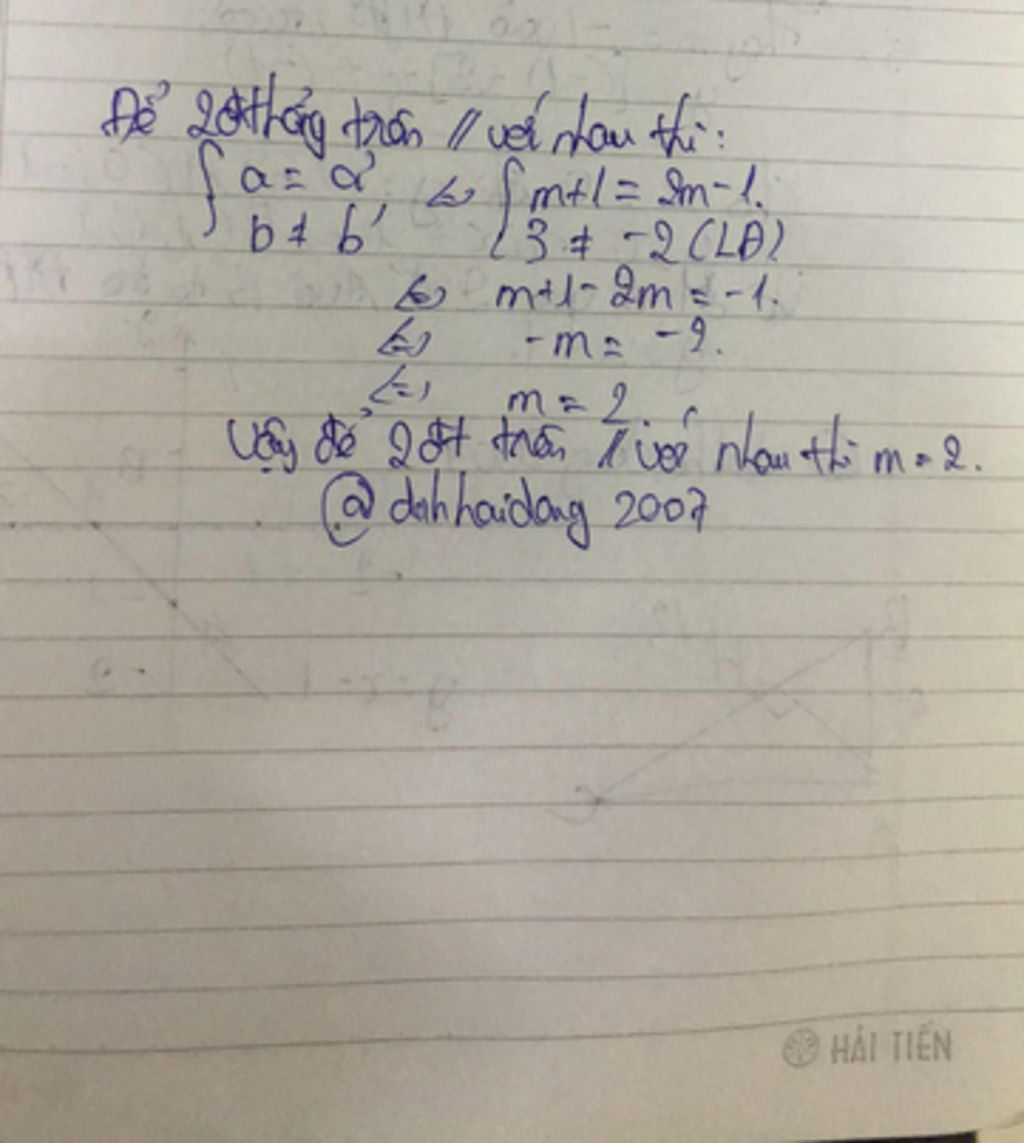 Để 2đthẳng trên // với nhau thì:
{ a = a' <=> { m+1 = 2m-1.
b ≠ b' 3 ≠ -2 (LĐ)
<=> m+1-2m = -1.
<=> -m = -2.
<=> m = 2
Vậy để 2đt trên // với nhau thì m = 2.
@dinhhaidang 2007
HẢI TIẾN